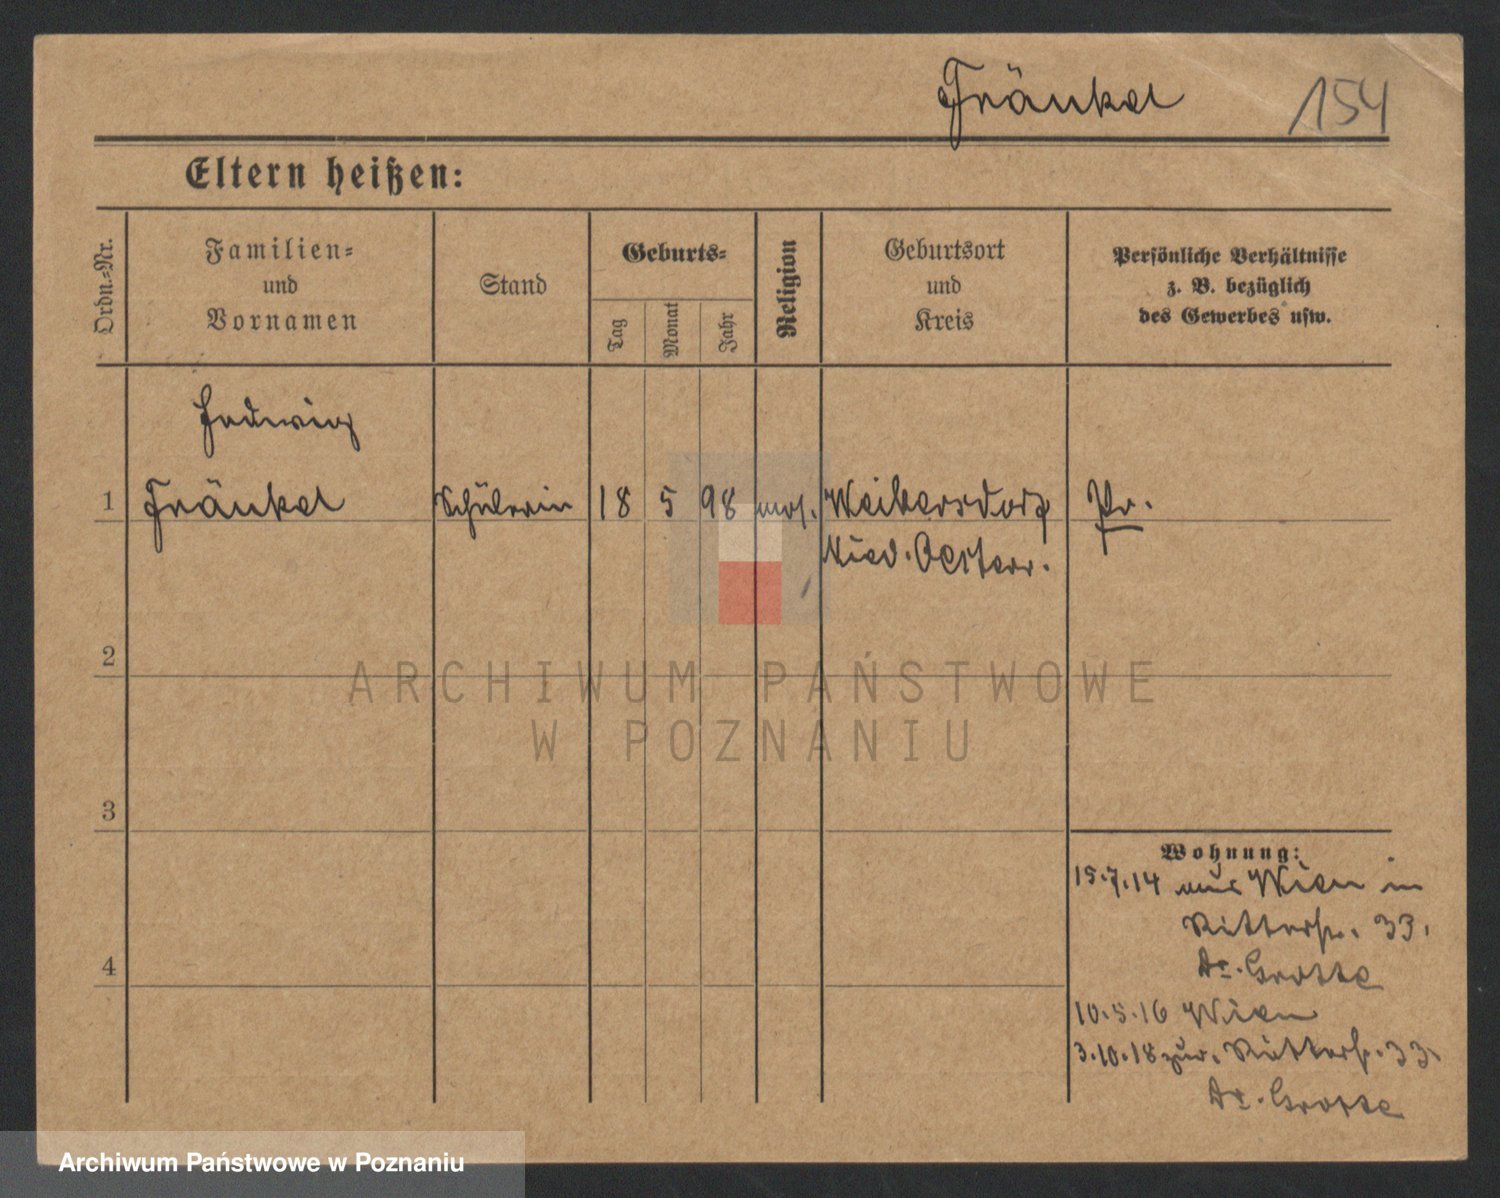 Fränkel 154
Eltern heißen:
Ordn.-Nr.
Familien-
und
Vornamen
Stand
Geburts-
Tag
Monat
Jahr
Religion
Geburtsort
und
Kreis
Persönliche Verhältnisse
z. B. bezüglich
des Gewerbes usw.
Hedwig
1 Fränkel Schülerin 18 5 98 mos. Weikersdorf Pr.
Nied. Oesterr.
2
3
4
Wohnung:
15.7.14 aus Wien in
Ritterstr. 33.
Dr. Grotte
10.5.16 Wien
3.10.18 zur. Ritterstr. 33.
Dr. Grotte
ARCHIWUM PAŃSTWOWE
W POZNANIU
Archiwum Państwowe w Poznaniu